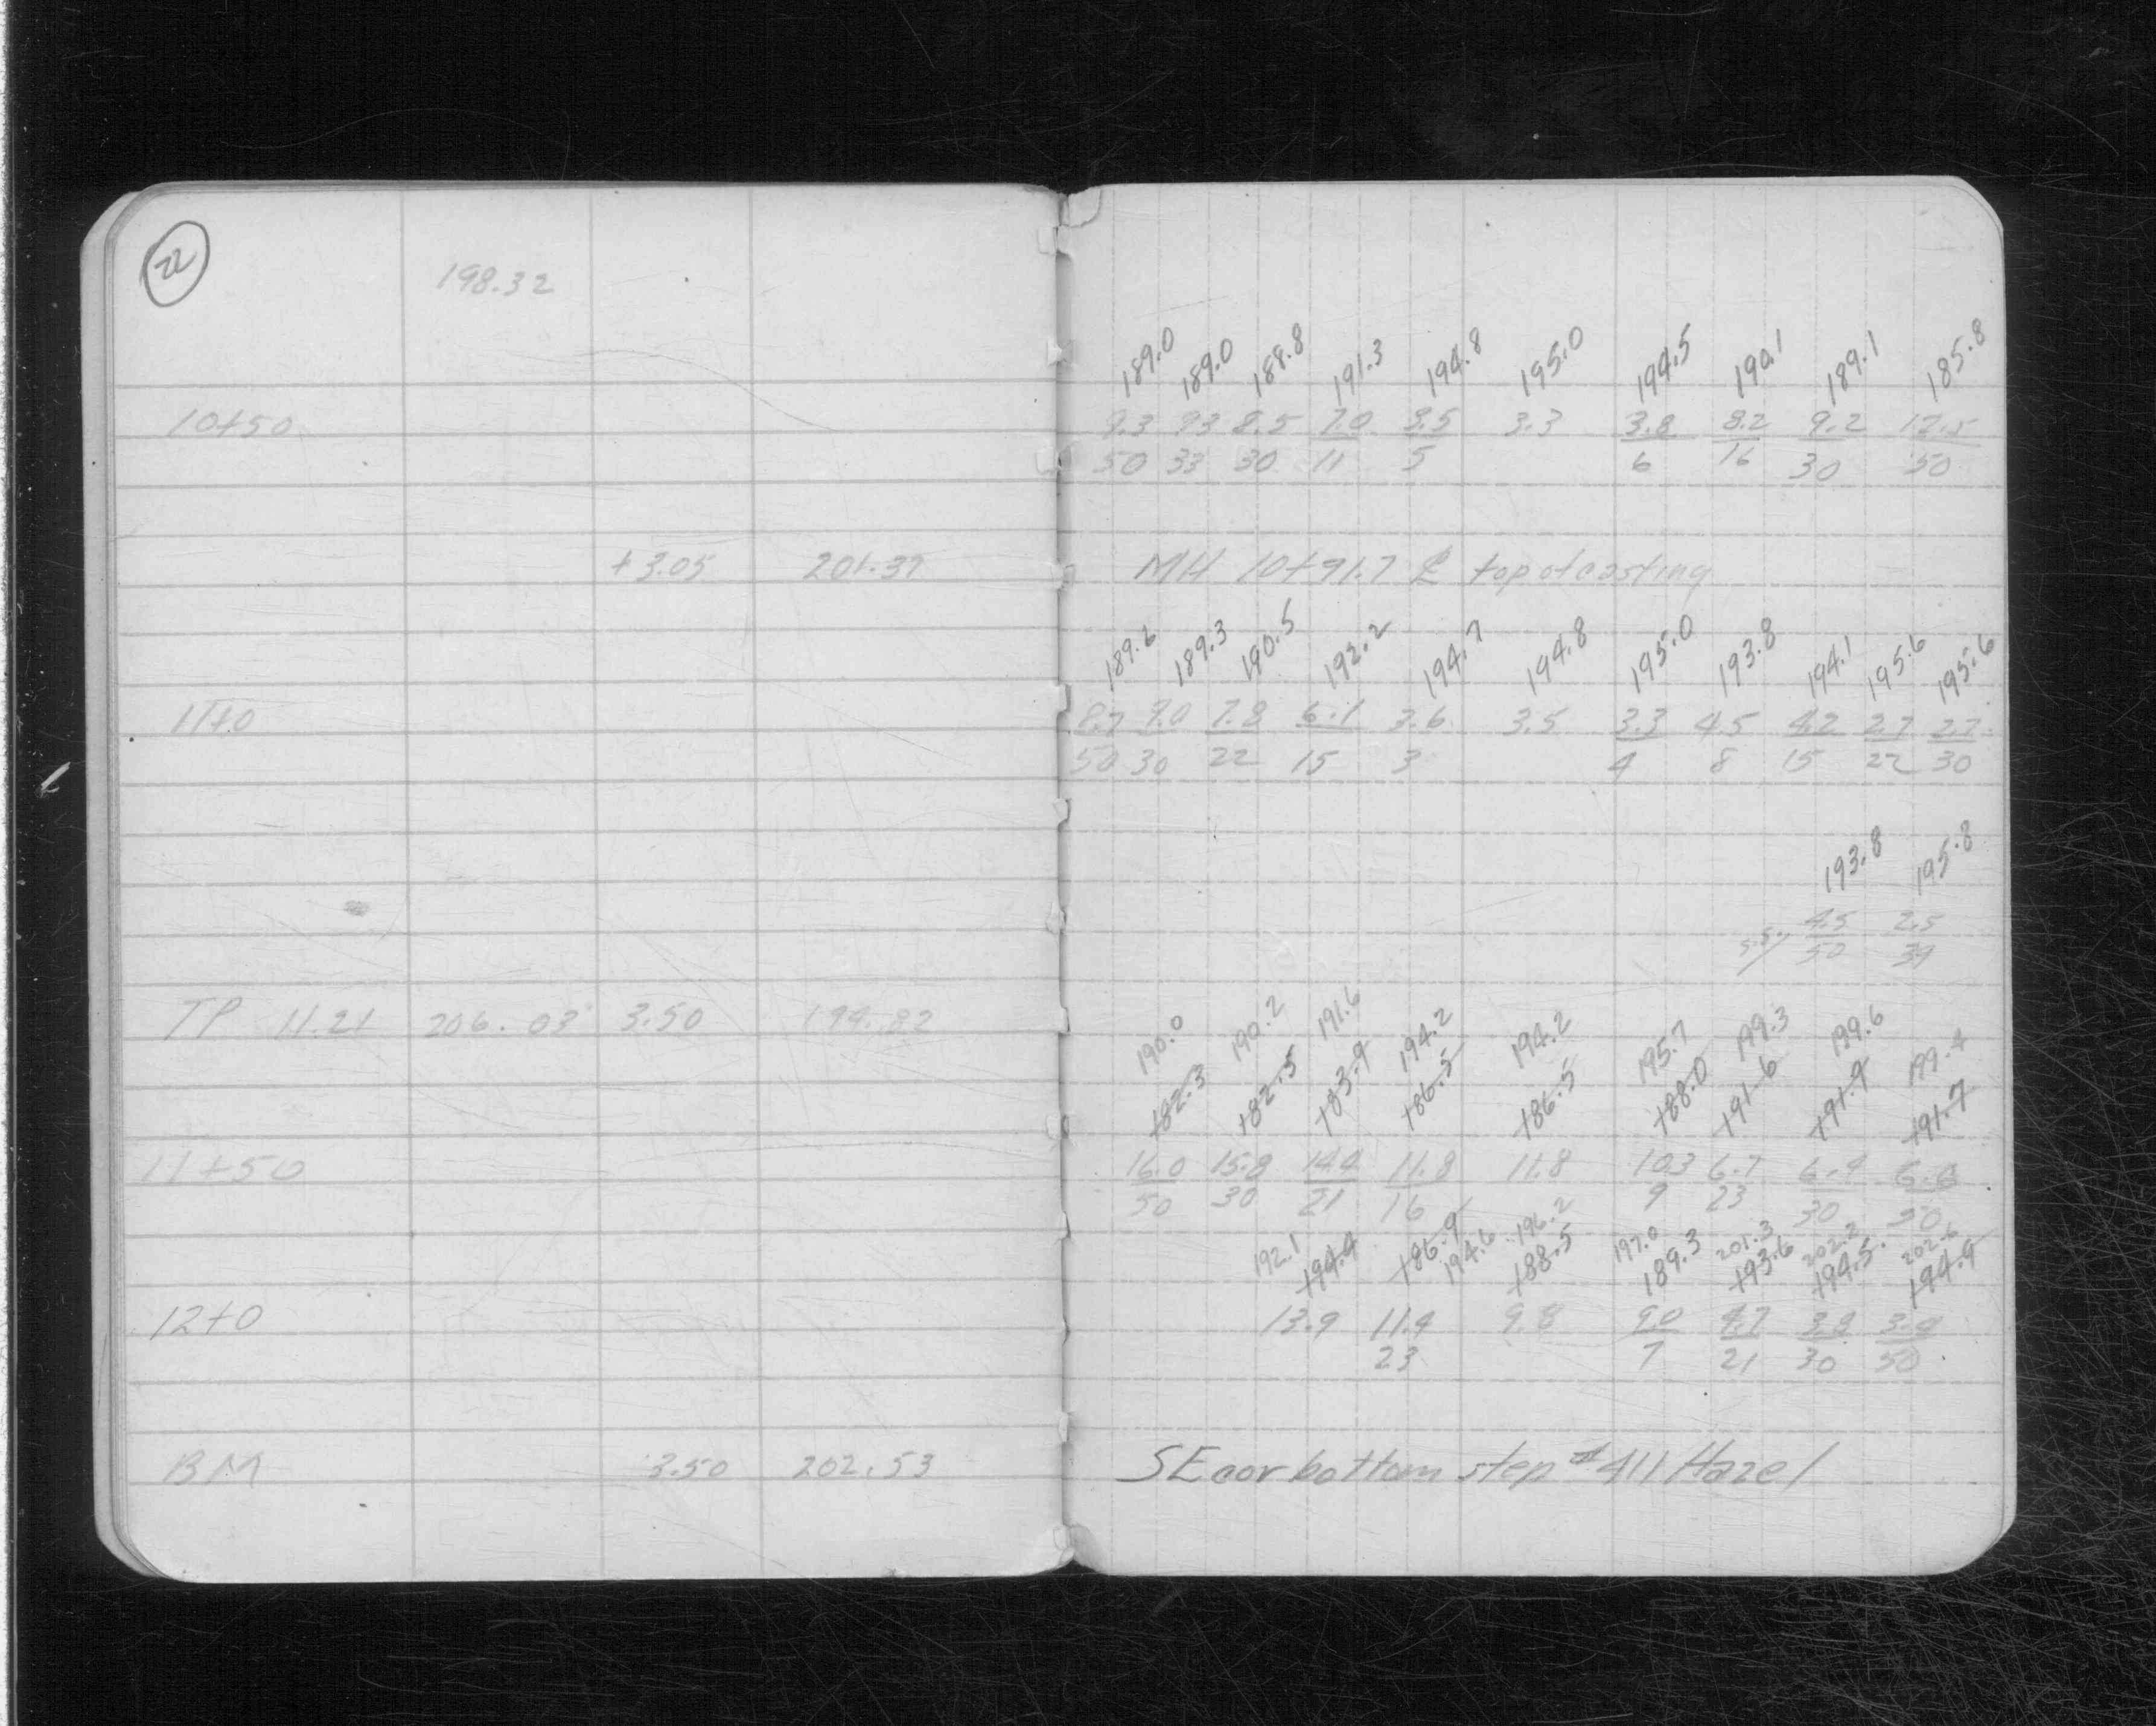 22
198.32
189.0 189.0 188.8 191.3 194.8 195.0 194.5 190.1 189.1 185.8
10+50 9.3 9.3 8.5 7.0 3.5 3.3 3.8 8.2 9.2 12.5
50 33 30 11 5 6 16 30 50
+3.05 201.37 MH 10+91.7 ℄ top of casting
189.6 189.3 190.5 192.2 194.7 194.8 195.0 193.8 194.1 195.6 195.6
11+0 8.7 9.0 7.8 6.1 3.6 3.5 3.3 4.5 4.2 2.7 2.7
50 30 22 15 3 4 8 15 22 30
193.8 195.8
4.5 2.5
50 39
TP 11.21 206.03 3.50 194.82
190.0 190.2 191.6 194.2 194.2 195.7 199.3 199.6 199.4
182.3 182.5 183.9 186.5 186.5 188.0 191.6 191.9 191.7
11+50 16.0 15.8 14.4 11.8 11.8 10.3 6.7 6.4 6.6
50 30 21 16 9 23 30 50
192.1 194.6 196.2 197.0 201.3 202.2 202.6
194.4 186.9 188.5 189.3 193.6 194.5 194.9
12+0 13.9 11.4 9.8 9.0 4.7 3.8 3.4
23 7 21 30 50
BM 3.50 202.53 SE cor bottom step #411 Hazel